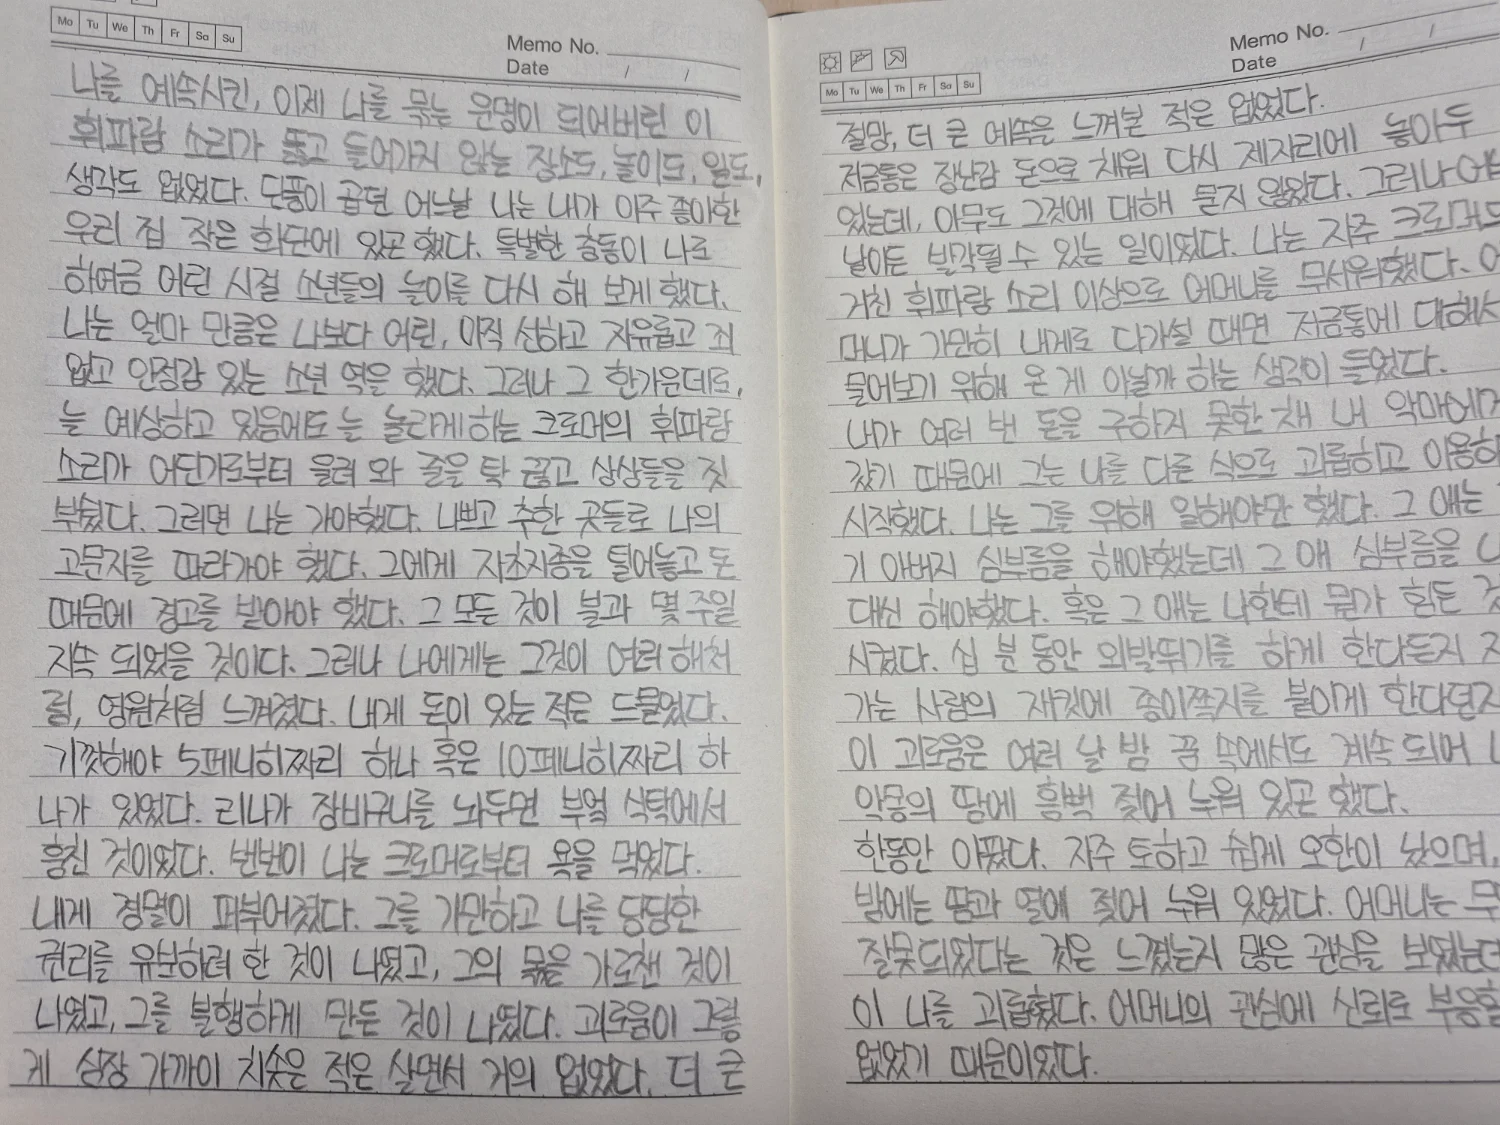 Mo Tu We Th Fr Sa Su
Memo No.
Date / /
나를 예속시킨, 이제 나를 묶는 운명이 되어버린 이
휘파람 소리가 뚫고 들어가지 않는 장소도, 놀이도, 일도,
생각도 없었다. 단풍이 곱던 어느날 나는 내가 아주 좋아한
우리 집 작은 화단에 있곤 했다. 특별한 충동이 나로
하여금 어린 시절 소년들의 놀이를 다시 해 보게 했다.
나는 얼마 만큼은 나보다 어린, 아직 선하고 자유롭고 죄
없고 안정감 있는 소년 역을 했다. 그러나 그 한가운데로,
늘 예상하고 있음에도 늘 놀라게 하는 크로머의 휘파람
소리가 어딘가로부터 울려 와 줄을 탁 끊고 상상들을 짓
부쉈다. 그러면 나는 가야했다. 나쁘고 추한 곳들로 나의
고문자를 따라가야 했다. 그에게 자초지종을 털어놓고 돈
때문에 경고를 받아야 했다. 그 모든 것이 불과 몇 주일
지속 되었을 것이다. 그러나 나에게는 그것이 여러 해처
럼, 영원처럼 느껴졌다. 내게 돈이 있는 적은 드물었다.
기껏해야 5페니히짜리 하나 혹은 10페니히짜리 하
나가 있었다. 리나가 장바구니를 놔두면 부엌 식탁에서
훔친 것이었다. 번번이 나는 크로머로부터 욕을 먹었다.
내게 경멸이 퍼부어졌다. 그를 기만하고 나를 당당한
권리를 유분하려 한 것이 나였고, 그의 몫을 가로챈 것이
나였고, 그를 불행하게 만든 것이 나였다. 괴로움이 그렇
게 심장 가까이 치솟은 적은 살면서 거의 없었다. 더 큰
Memo No.
Date / /
Mo Tu We Th Fr Sa Su
절망, 더 큰 예속은 느껴본 적은 없었다.
저금통은 장난감 돈으로 채워 다시 제자리에 놓아두
었는데, 아무도 그것에 대해 묻지 않았다. 그러나
날이든 발각될 수 있는 일이었다. 나는 자주 크로머의
거친 휘파람 소리 이상으로 어머니를 무서워했다. 어
머니가 가만히 내게로 다가설 때면 저금통에 대해서
물어보기 위해 온 게 아닐까 하는 생각이 들었다.
내가 여러 번 돈을 구하지 못한 채 내 악마에게
갔기 때문에 그는 나를 다른 식으로 괴롭히고 이용하
시작했다. 나는 그를 위해 일해야만 했다. 그 애는
기 아버지 심부름을 해야했는데 그 애 심부름을
대신 해야했다. 혹은 그 애는 나한테 뭔가 힘든
시켰다. 십 분 동안 외발뛰기를 하게 한다든지
가는 사람의 재킷에 종이쪽지를 붙이게 한다던지
이 괴로움은 여러 날 밤 꿈 속에서도 계속 되어
악몽의 땀에 흠뻑 젖어 누워 있곤 했다.
한동안 아팠다. 자주 토하고 쉽게 오한이 났으며,
밤에는 땀과 열에 젖어 누워 있었다. 어머니는
잘못되었다는 것은 느꼈는지 많은 관심을 보였는데
이 나를 괴롭혔다. 어머니의 관심에 신뢰로 부응할
없었기 때문이었다.